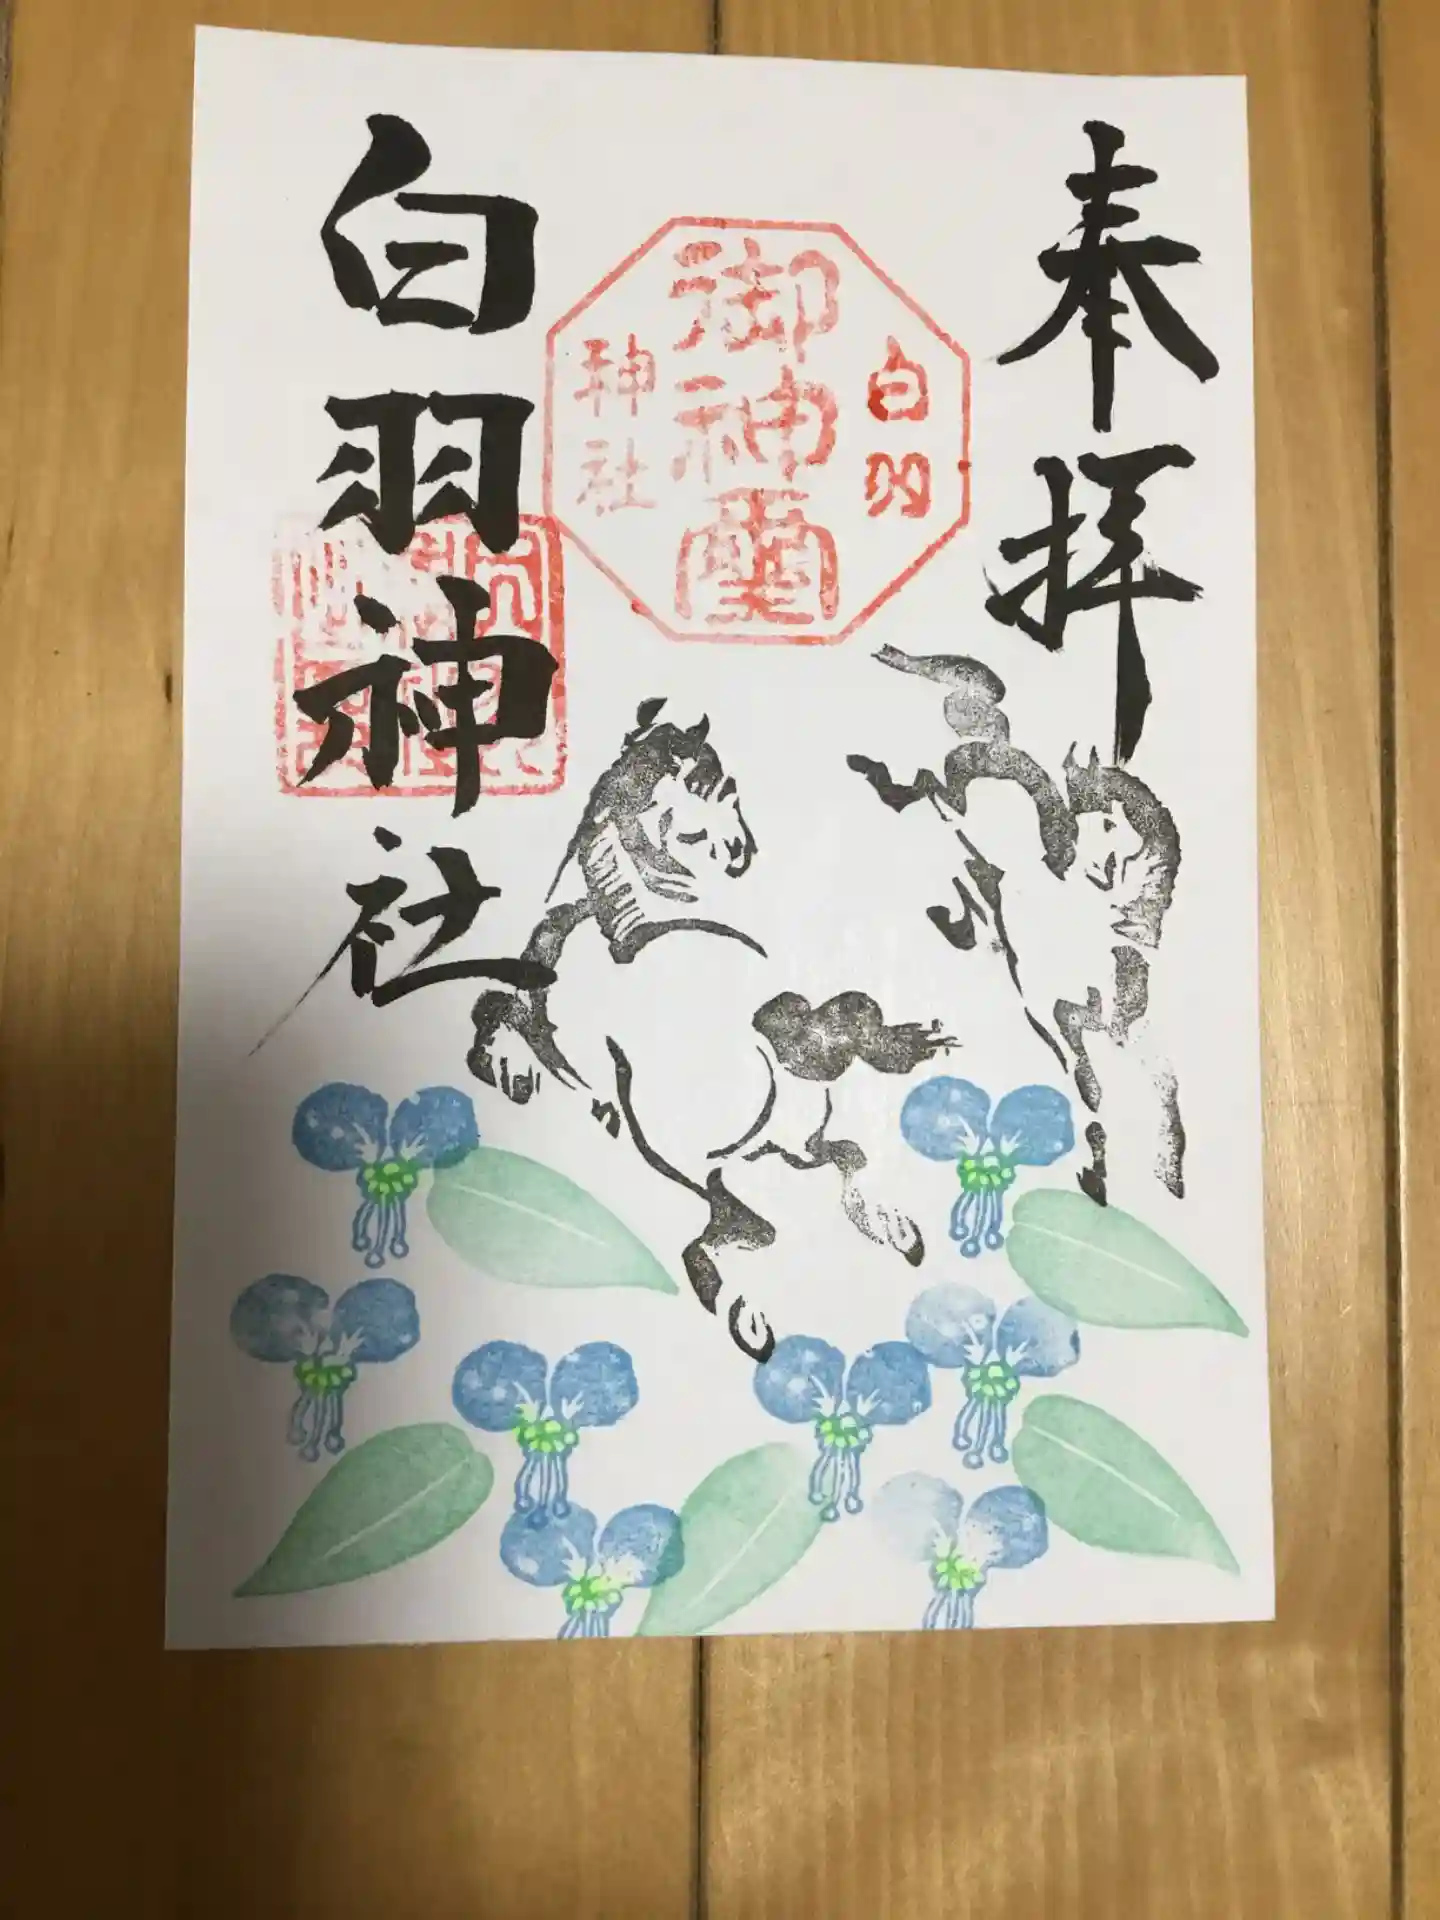 奉拝
白羽
御神霊
神社
白羽神社